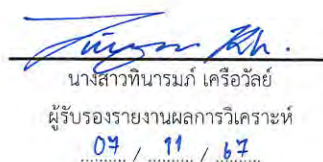 นางสาวทินารมภ์ เครือวัลย์
ผู้รับรองรายงานผลการวิเคราะห์
07 / 11 / 67